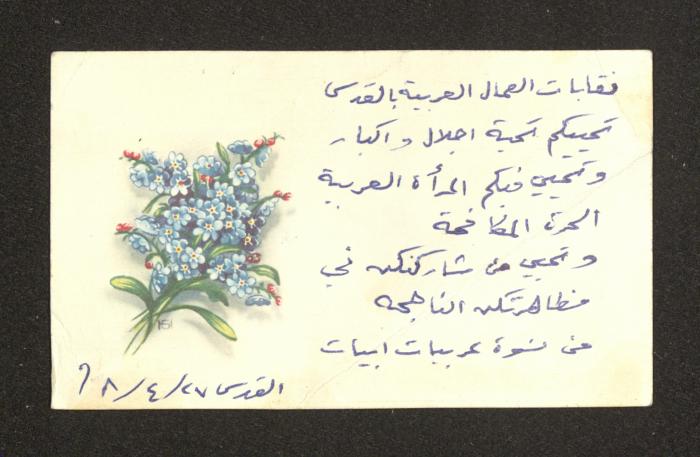 نقابات العمال العربية بالقدس
تحييكم تحية اجلال و اكبار
و تحيي فيكم المرأة العربية
الحرة المكافحة
و تحيي من شاركنكن في
مظاهرتكن الناجحه
من نسوة عربيات ابيات
القدس ٢٧/٤/٨